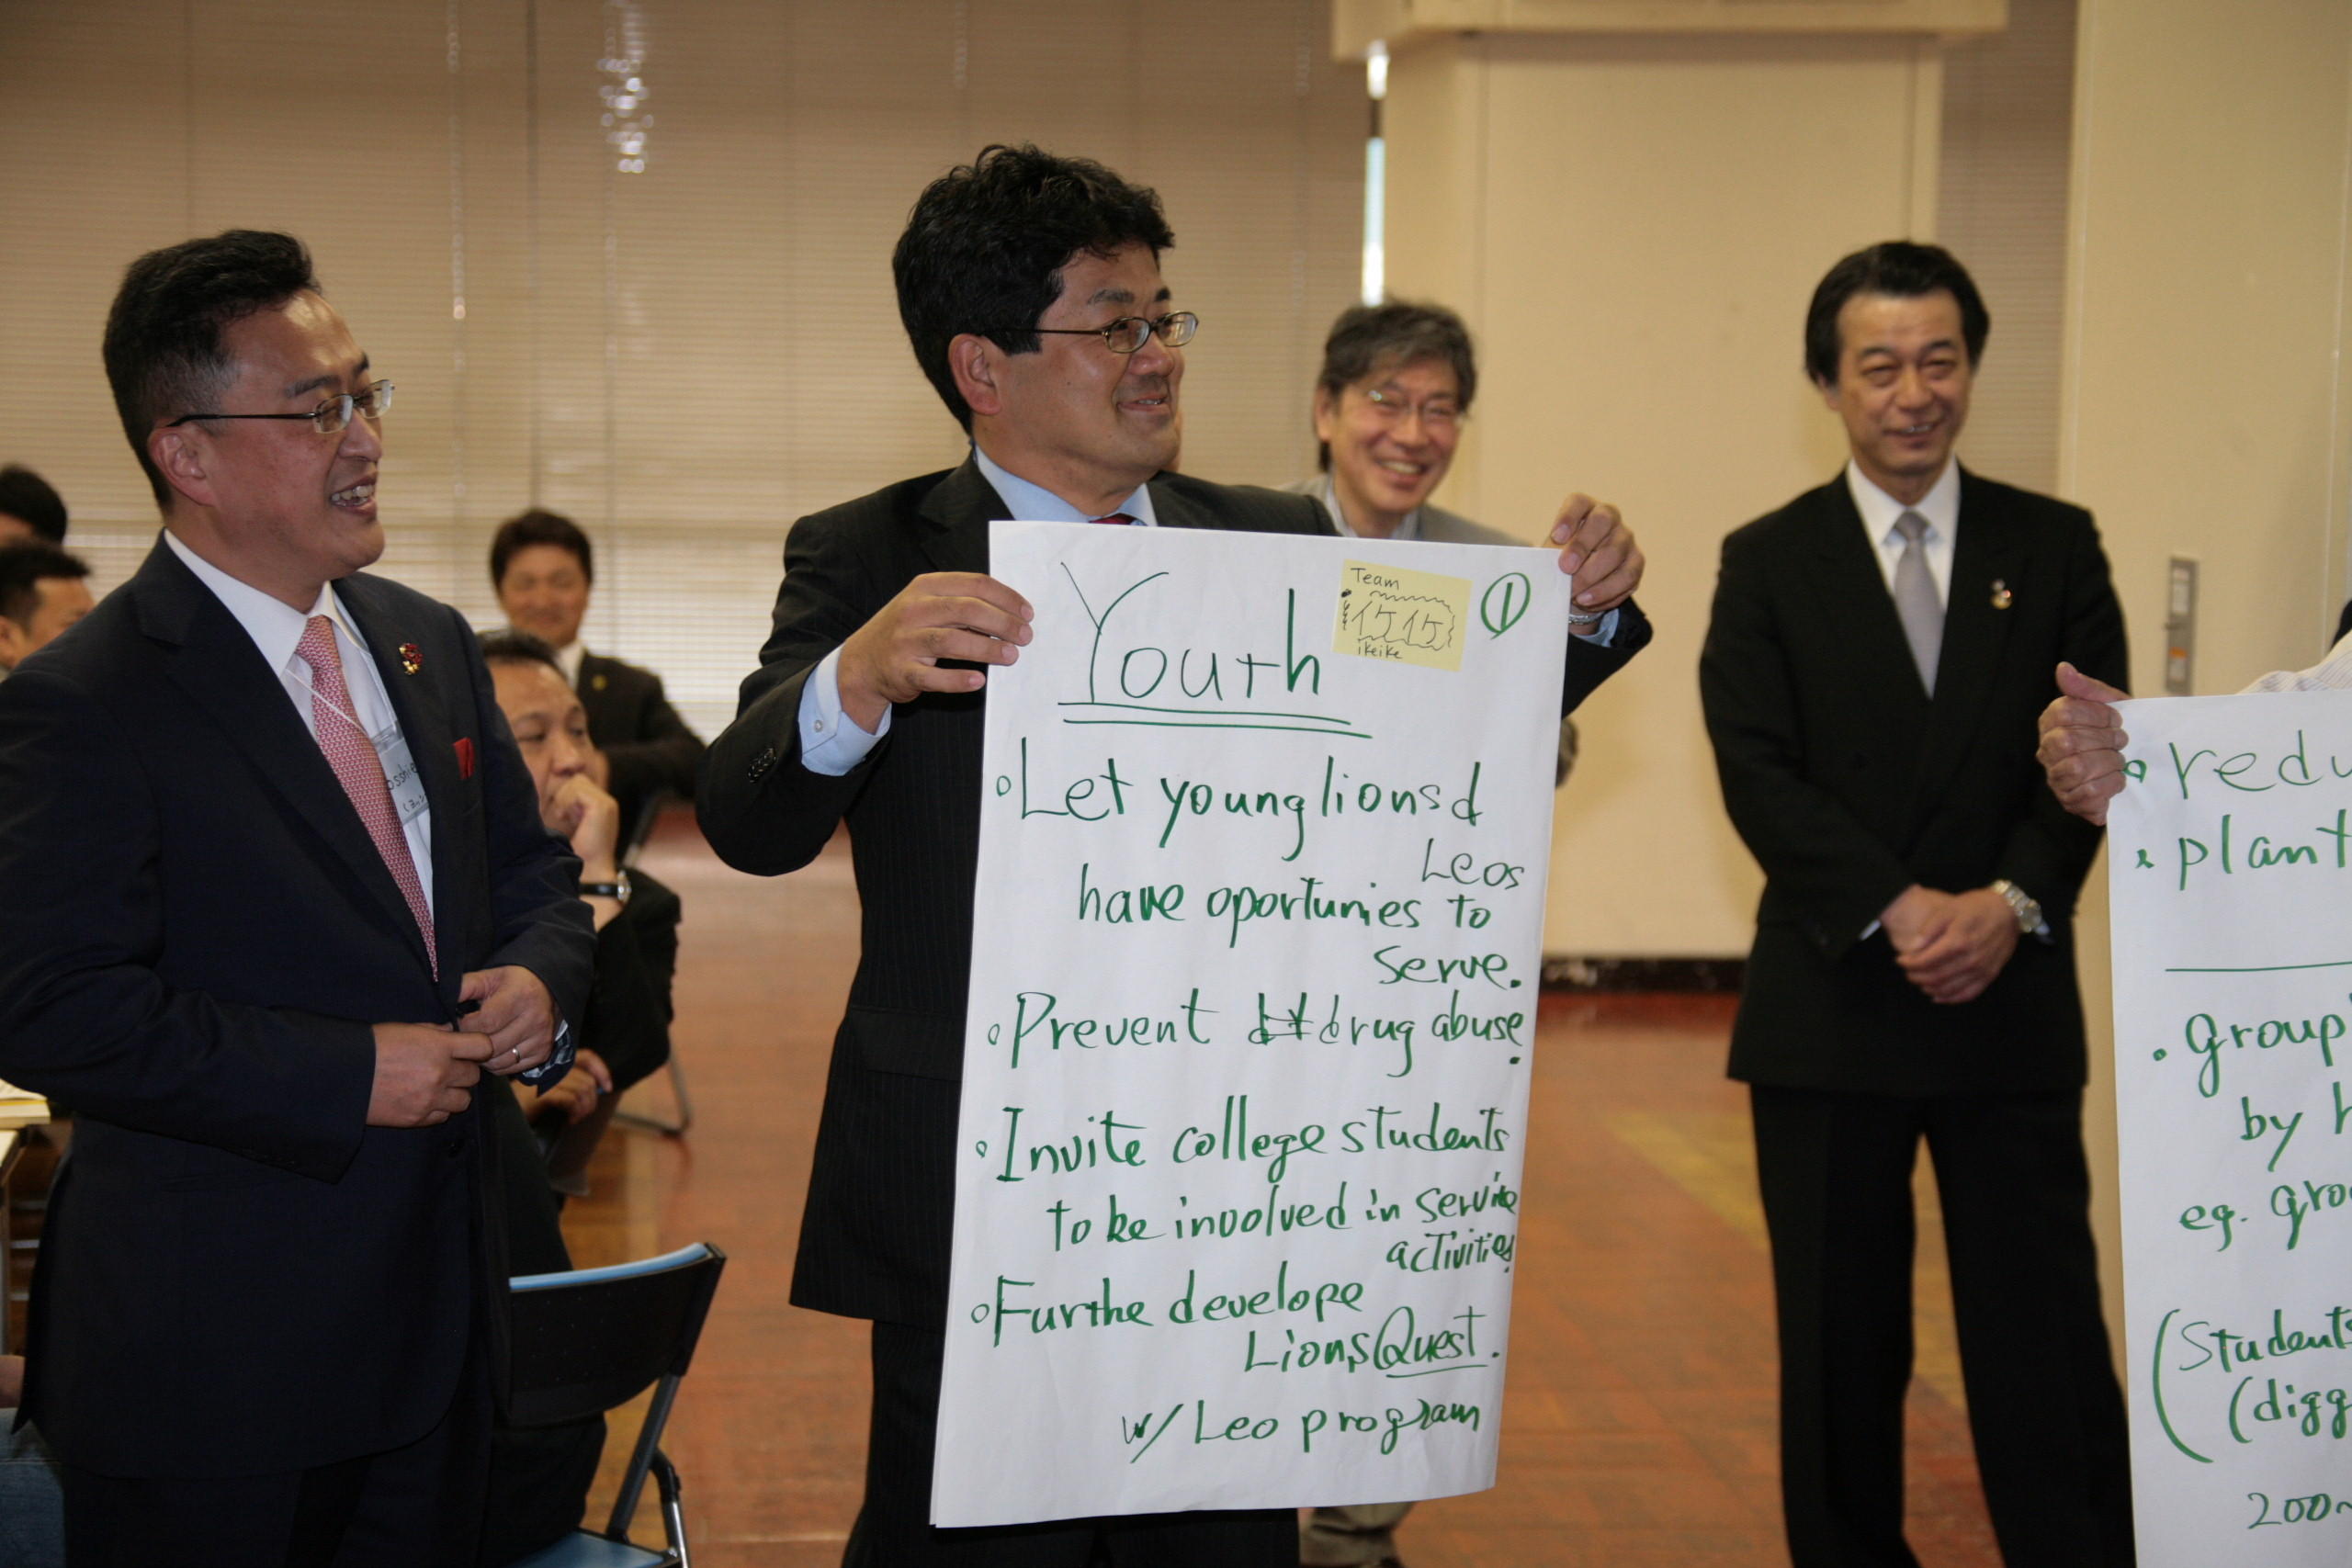 Youth
Team
イケイケ
ikeike
①
• Let young lions d
Leos
have oportunies to
serve.
• Prevent drug abuse.
• Invite college students
to be involved in service
activities.
• Furthe develope
Lions Quest.
w/ Leo program
• redu
• plant
• group
by h
eg. gro
(Students
(digg
200